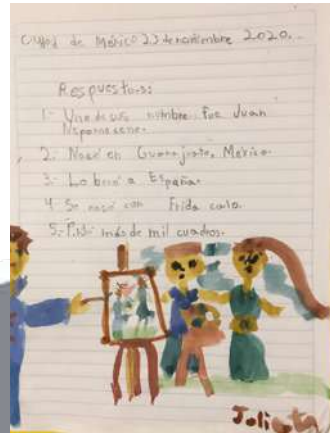 Ciudad de México 23 de noviembre 2020.
Respuestas:
1- Uno de sus nombre fue Juan
Nepomuceno.
2- Nació en Guanajuato, México.
3- Lo becó a España.
4- Se casó con Frida
5- más de mil cuadros.
Julieta